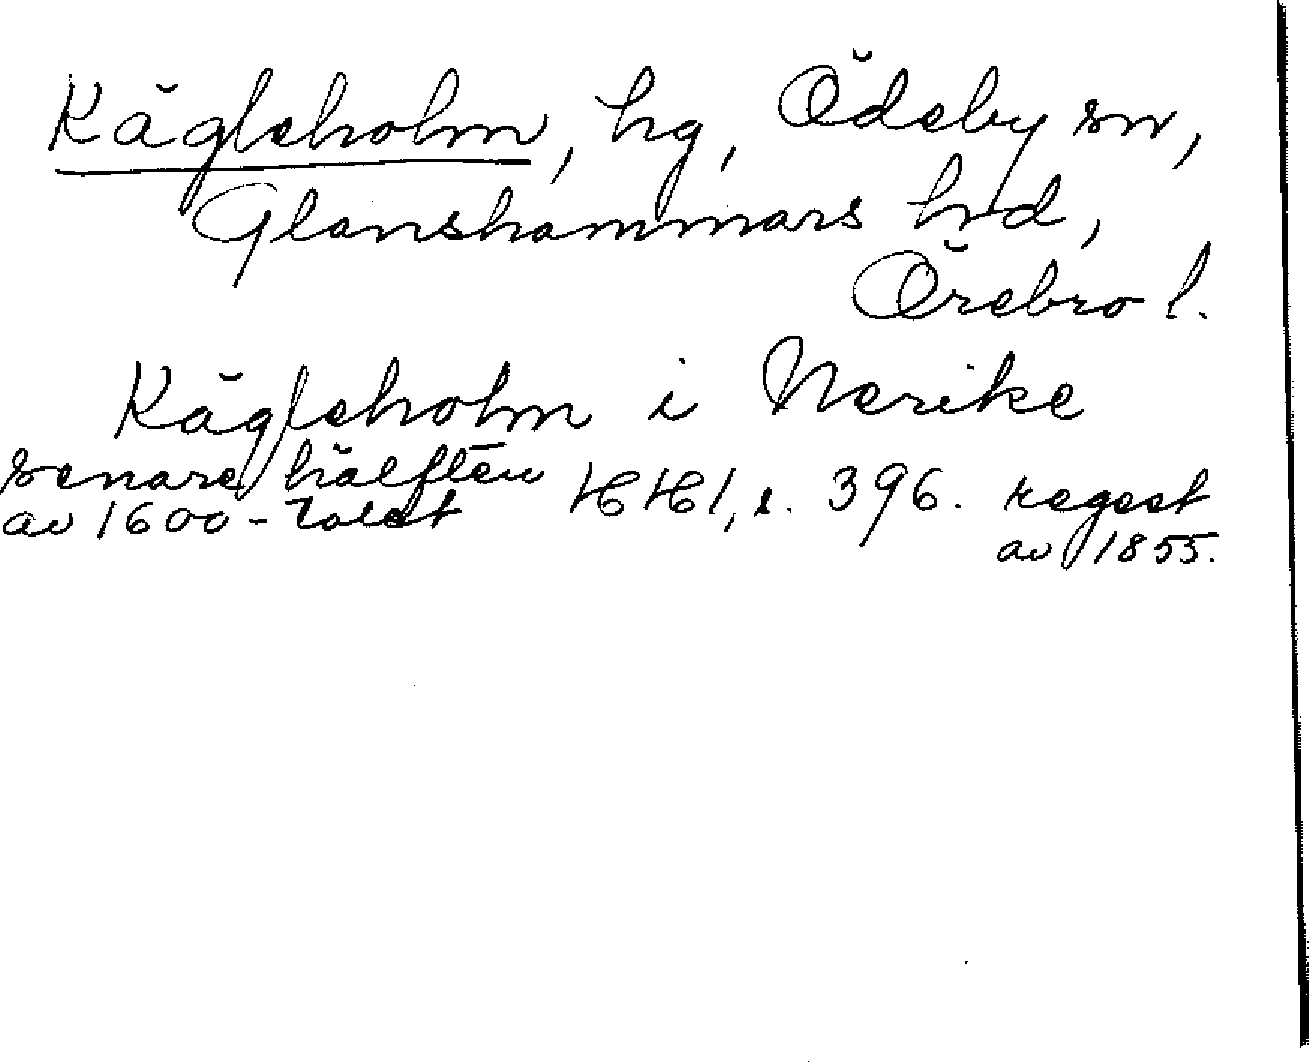 Kägleholm, hg, Ödeby sn,
Glanshammars hrd,
Örebro l.
Kägleholm i Nerike
senare hälften HH1, s. 396. regest
av 1600-talet av 1855.